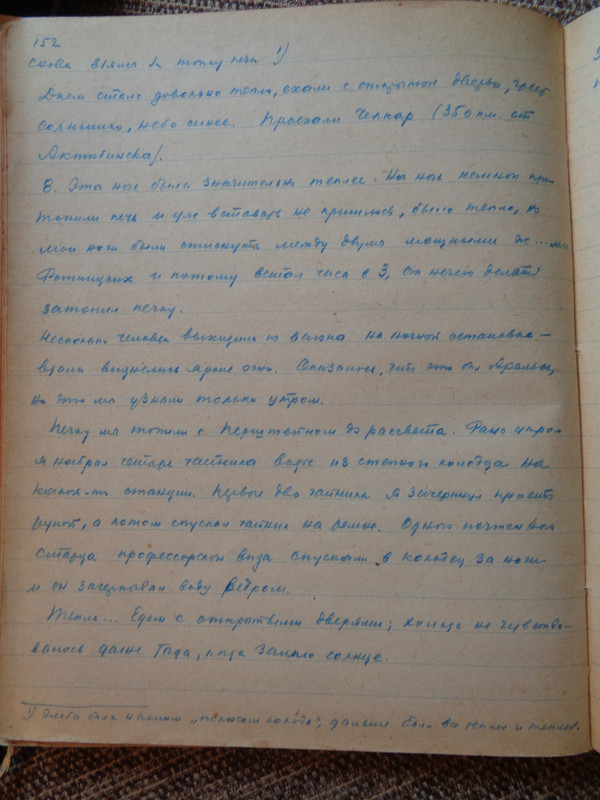 152
снова взялся за топку печи 1)
Днем стало довольно тепло, ехали с открытой дверью, греет
солнышко, небо синее. Проехали Челкар (350 км. от
Актюбинска).
8. Эта ночь была значительно теплее. На ночь немного про-
топили печь и уже вставать не пришлось, было тепло, но
мои ноги были стиснуты между двумя мощными
и потому встал часа в 3, от нечего делать
затопил печку.
Несколько человек выходили из вагона на ночной остановке –
вдали виднелись яркие огни. Оказалось, что это был Аральск,
но это мы узнали только утром.
Печку мы топили с до рассвета. Рано утром
я набрал четыре чайника воды из степного колодца на
какой-то станции. Первые два чайника я зачерпнул просто
рукой, а потом спускал чайник на ремне. Одного почтенного
старца профессорского вида спускали в колодец за ноги
и он зачерпывал воду ведром.
Тепло... Едем с открытыми дверями; холода не чувствова-
валось даже тогда, когда зашло солнце.
1) Эмба была нашим „полюсом холода“, дальше было все теплее и теплее.